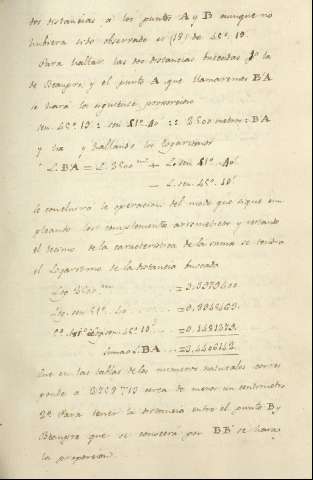 dos distancias à los puntos A y B aunque no
hubiera sido observado es (19) de 45º. 19.
Para hallar las dos distancias buscadas 1º la
de Beaupra y el punto A que llamaremos BA
se hará la siguiente proporcion
sen. 45º. 19: sen 51º. 40 :: 2500 metros : BA
y hallando los Logaritmos
L. BA = L. 2500 + L. sen. 51º. 40'
— L. sen. 45º. 19'
Se concluirá la operacion del modo que sigue em
pleando los complementos aritmeticos y restando
el decimo de la caracteristica de la suma se tendrá
el Logaritmo de la distancia buscada
Log. 2500 = 3.3979400
Log. sen. 51º. 40 = 9.8945463
Log. sen. 45º. 19' = 0.1481279
Suma L. BA = 3.4406142
Que en las tablas de los numeros naturales corres
ponde à 2758 713 cerca de menor un centimetro
2º Para tener la distancia entre el punto B y
Beaupra que se conocerá por BB se hará
la proporcion.